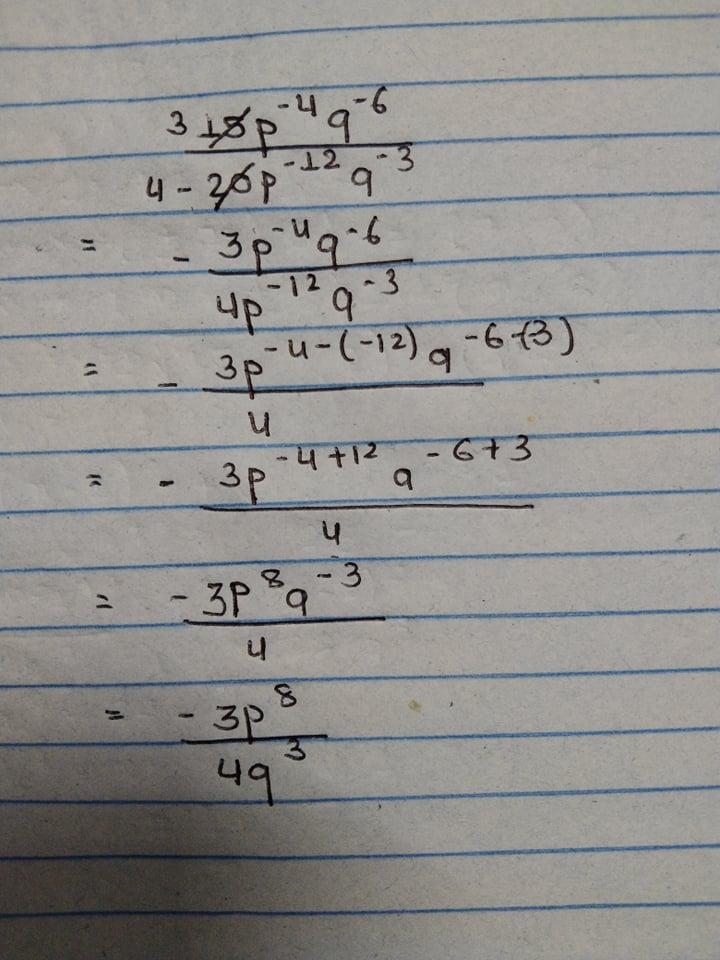 3 15p⁻⁴q⁻⁶
4 - 20p⁻¹²q⁻³
= - 3p⁻⁴q⁻⁶
4p⁻¹²q⁻³
= - 3p⁻⁴⁻⁽⁻¹²⁾q⁻⁶⁻⁽⁻³⁾
4
= - 3p⁻⁴⁺¹²q⁻⁶⁺³
4
= -3p⁸q⁻³
4
= -3p⁸
4q³